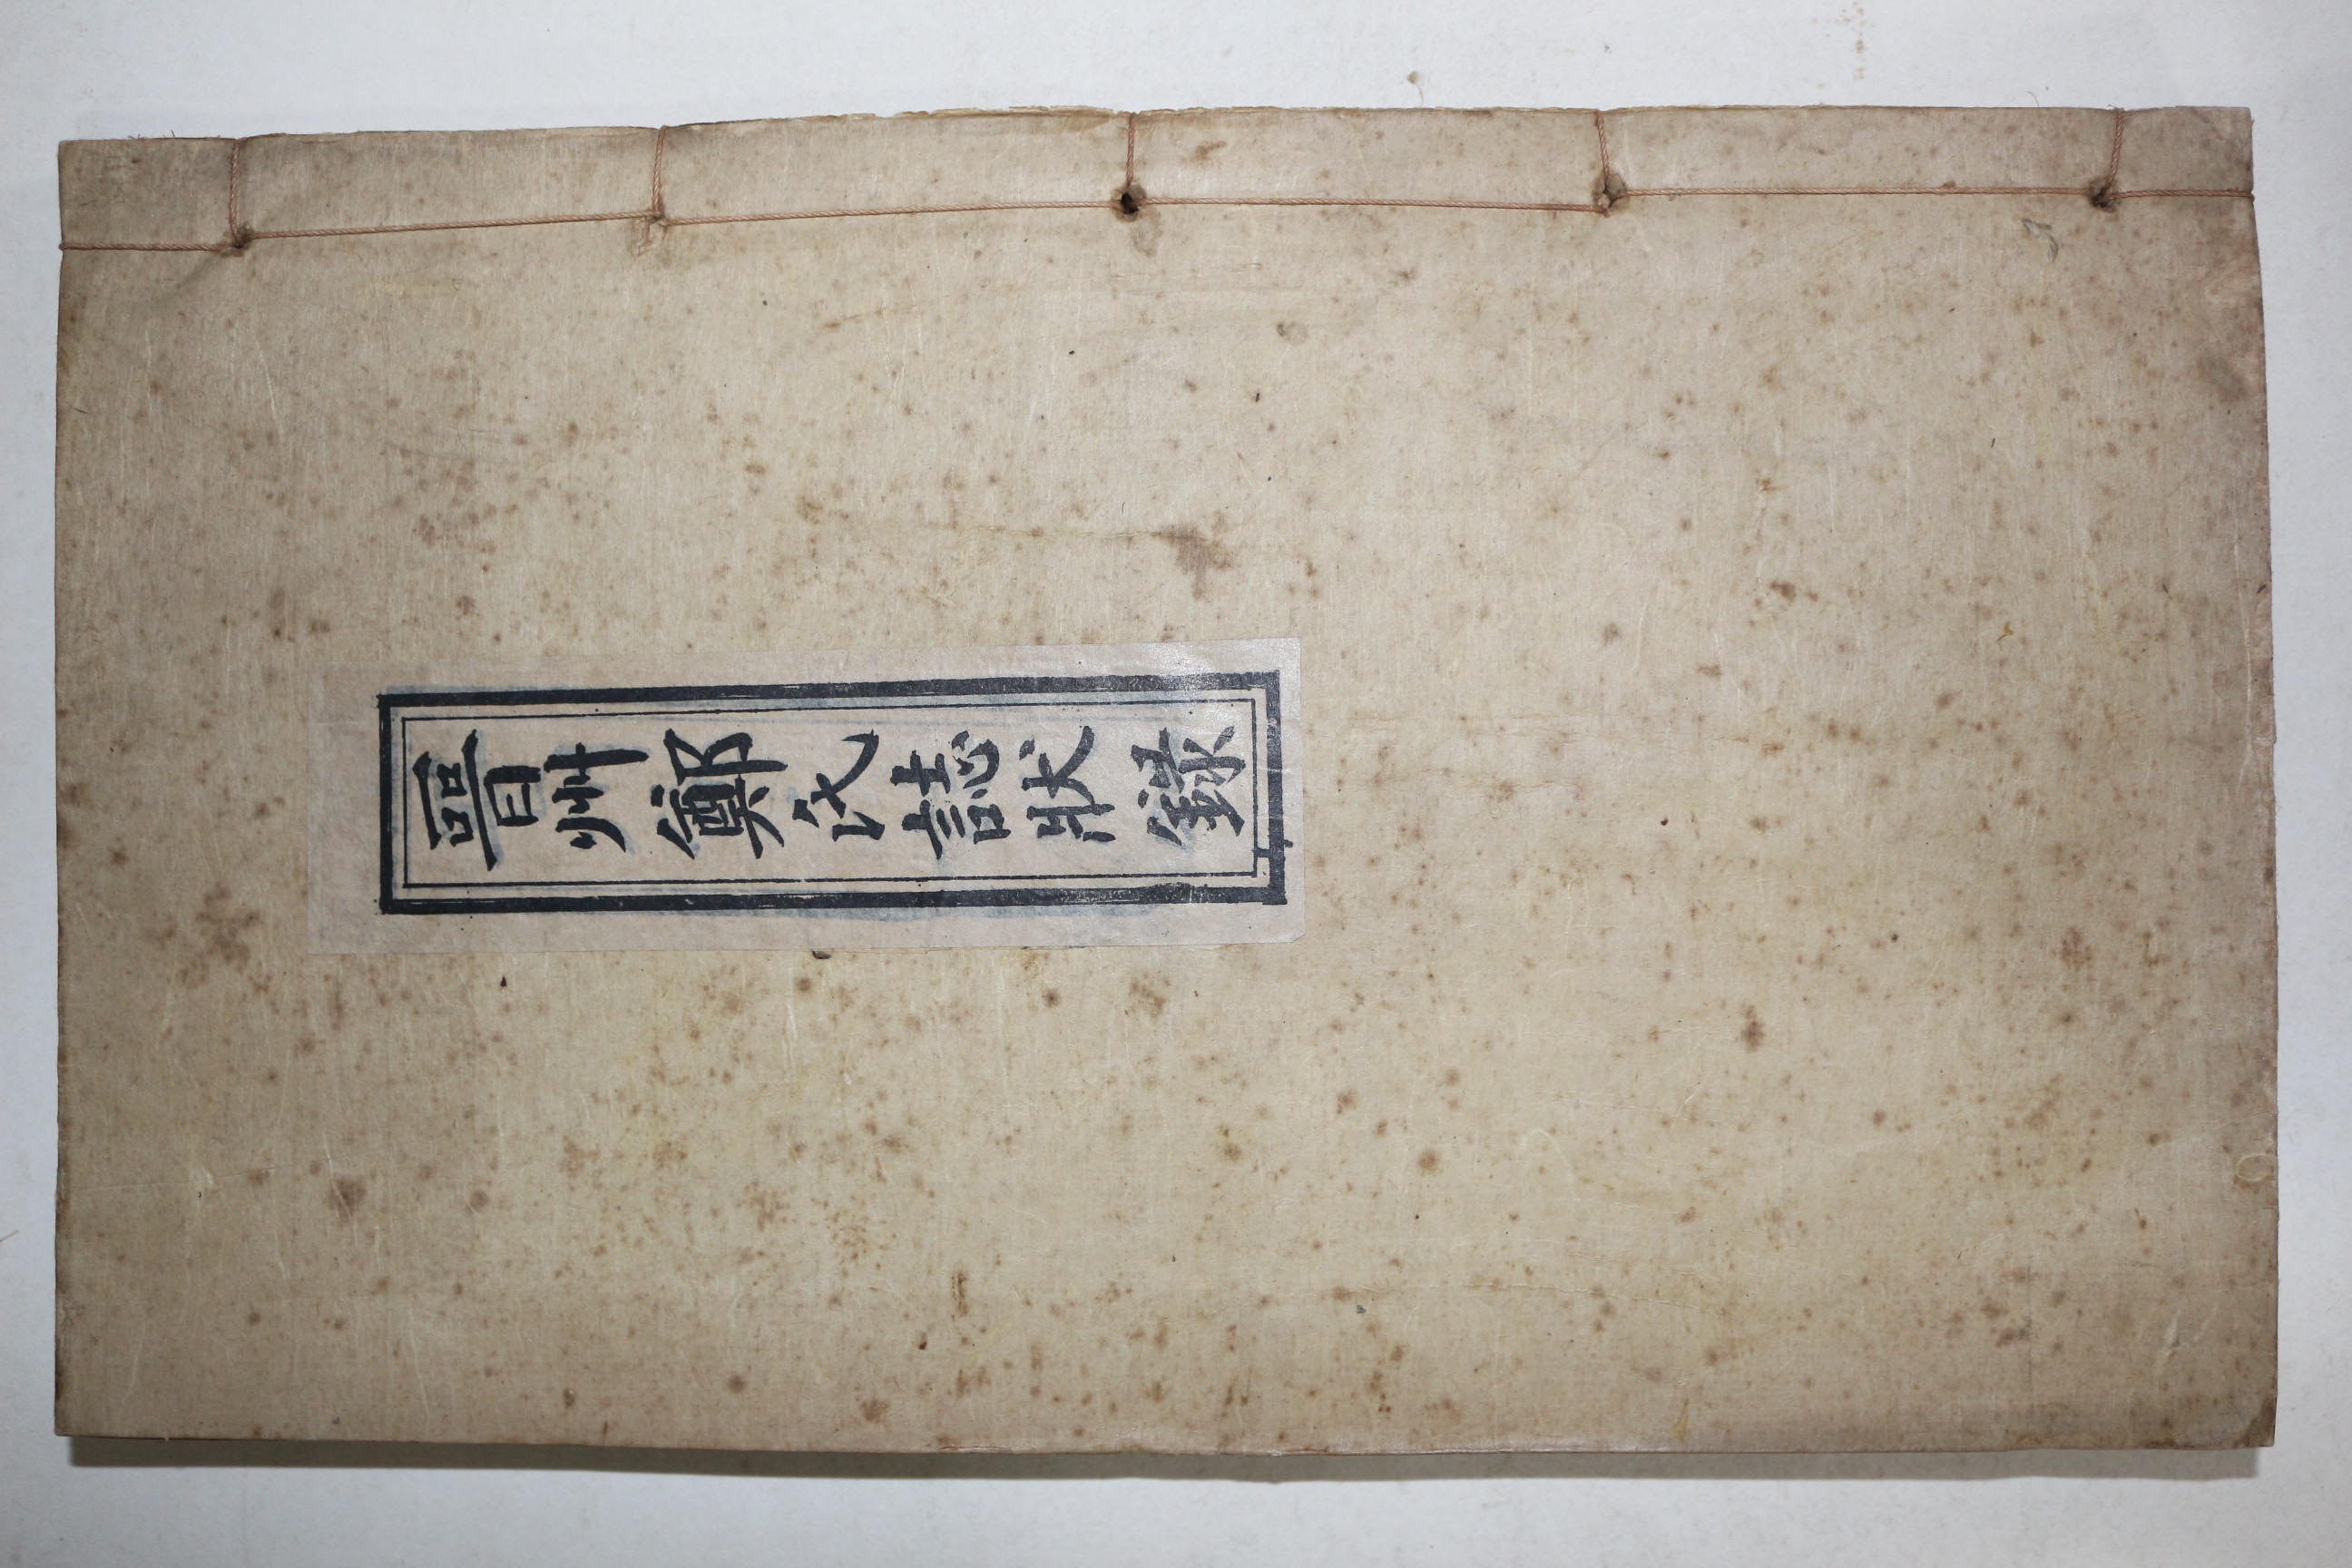 晉州鄭氏誌狀錄